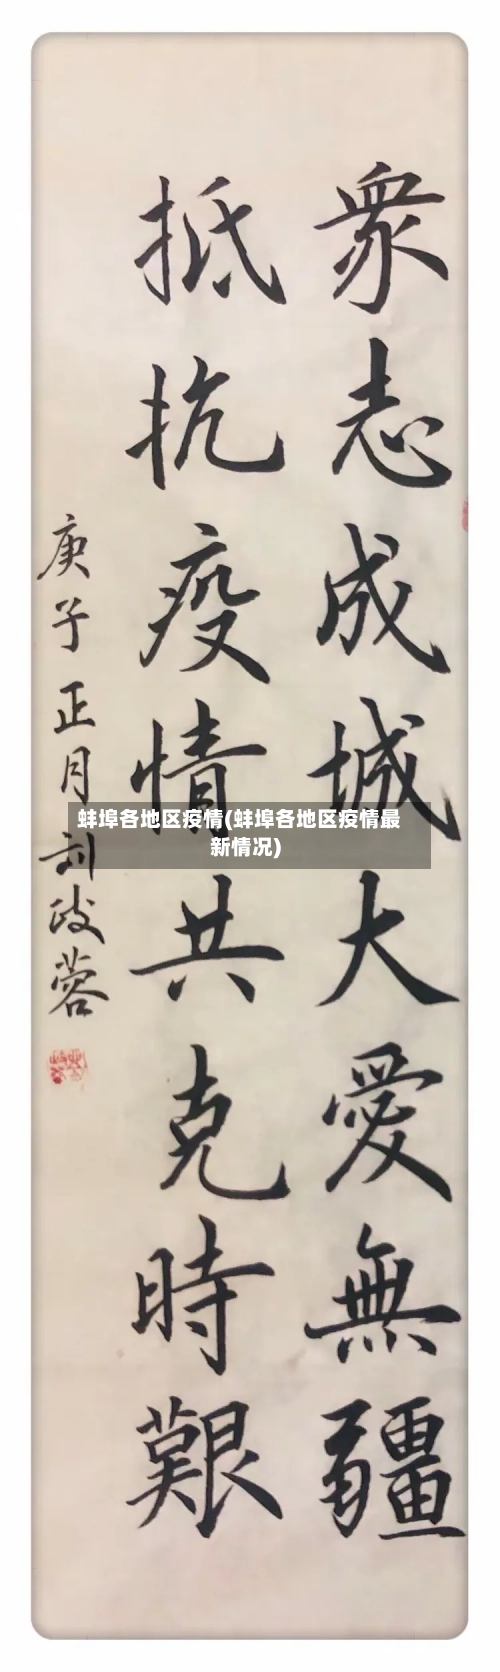 衆志成城大愛無疆
抵抗疫情共克時艱
庚子正月刘政蓉
蚌埠各地区疫情(蚌埠各地区疫情最
新情况)